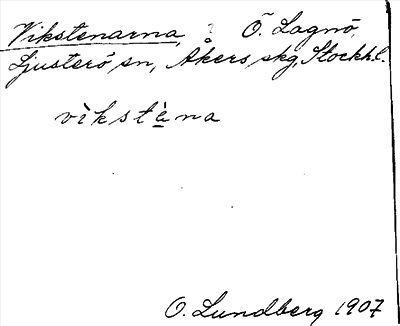 Vikstenarna, ? Ö. Lagnö,
Ljusterö sn, Åkers skg, Stockh.l.
vìkstè̲na
O. Lundberg 1907